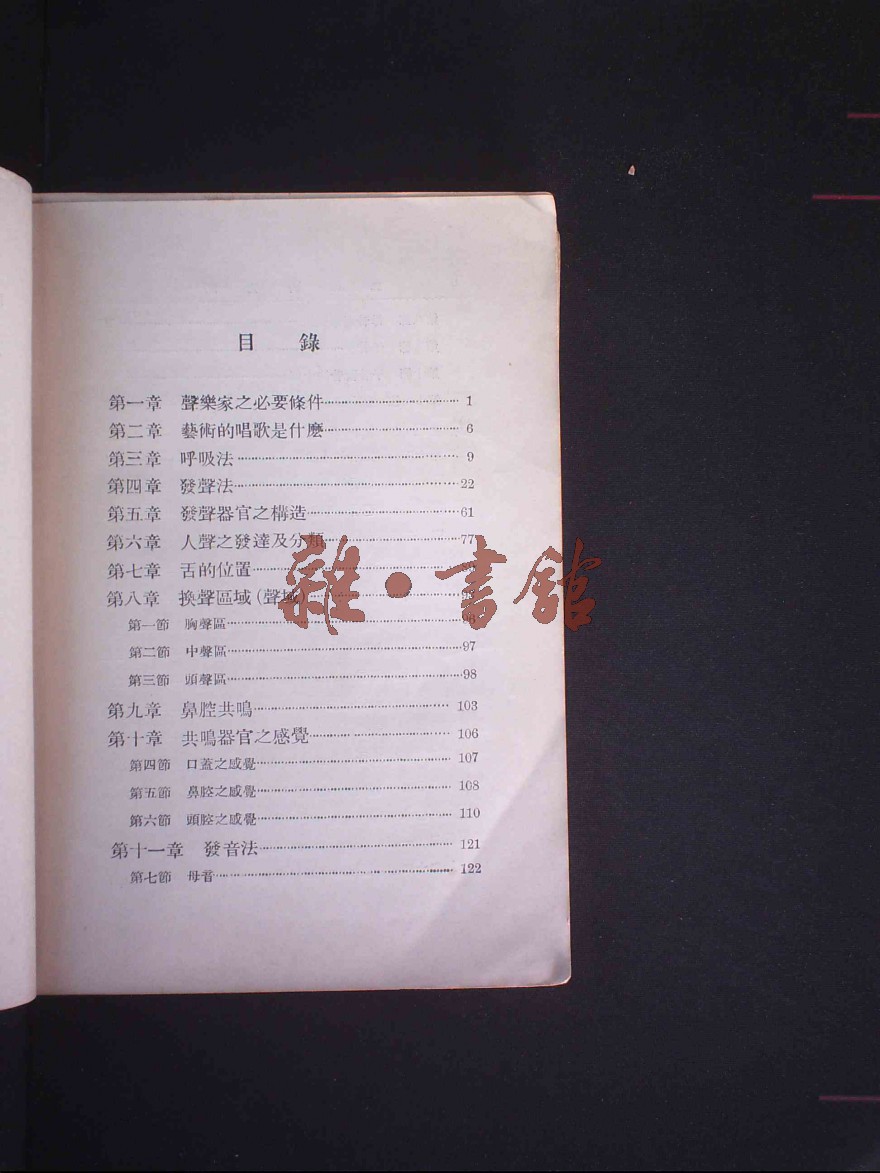 目錄
第一章 聲樂家之必要條件 1
第二章 藝術的唱歌是什麼 6
第三章 呼吸法 9
第四章 發聲法 22
第五章 發聲器官之構造 61
第六章 人聲之發達及分類 77
第七章 舌的位置
第八章 換聲區域(聲域)
第一節 胸聲區 96
第二節 中聲區 97
第三節 頭聲區 98
第九章 鼻腔共鳴 103
第十章 共鳴器官之感覺 106
第四節 口蓋之感覺 107
第五節 鼻腔之感覺 108
第六節 頭腔之感覺 110
第十一章 發音法 121
第七節 母音 122
雜·書館